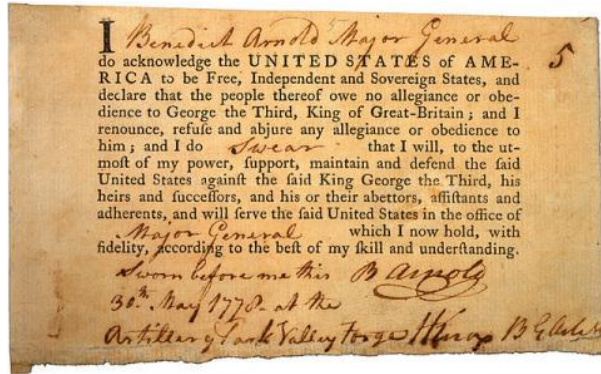 I Benedict Arnold Major General
5
do acknowledge the UNITED STATES of AME-
RICA to be Free, Independent and Sovereign States, and
declare that the people thereof owe no allegiance or obe-
dience to George the Third, King of Great-Britain; and I
renounce, refuſe and abjure any allegiance or obedience to
him; and I do swear that I will, to the ut-
moſt of my power, ſupport, maintain and defend the ſaid
United States againſt the ſaid King George the Third, his
heirs and ſucceſſors, and his or their abettors, aſſiſtants and
adherents, and will ſerve the ſaid United States in the office of
Major General which I now hold, with
fidelity, according to the beſt of my ſkill and underſtanding.
Sworn before me this B Arnold
30th May 1778 - at the
Artillery Park Valley Forge HKnox B G